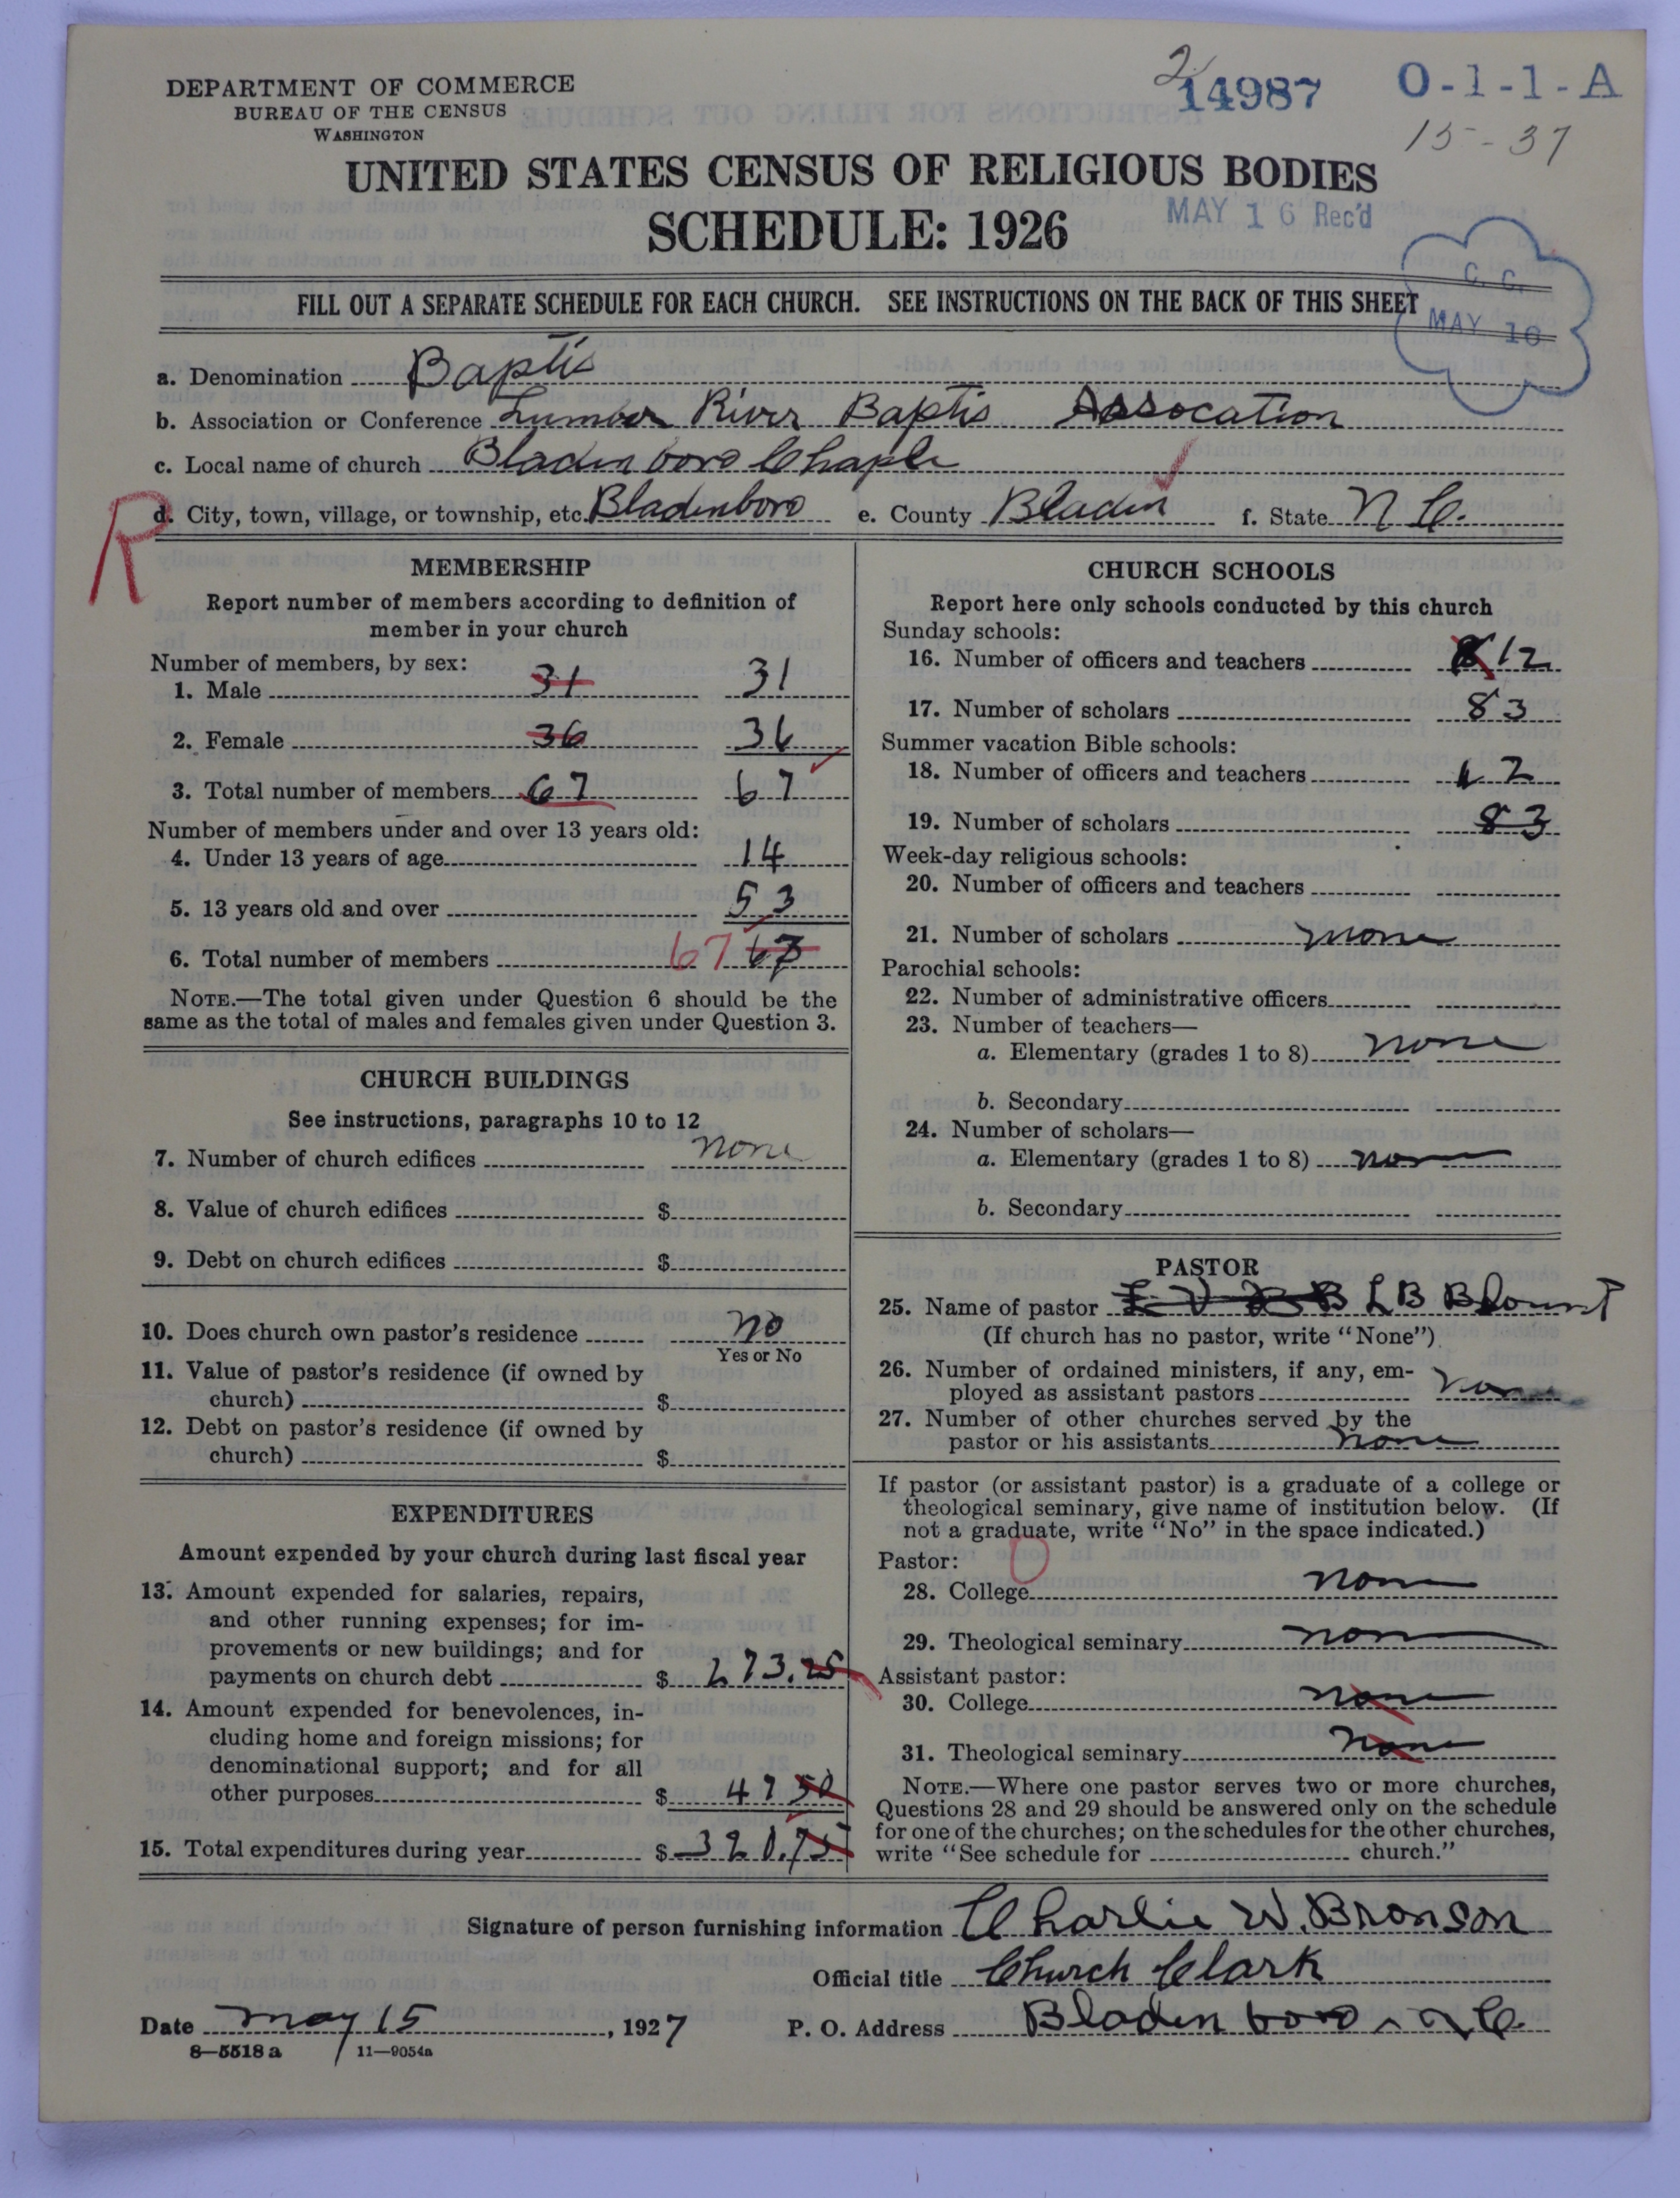 DEPARTMENT OF COMMERCE
BUREAU OF THE CENSUS
WASHINGTON
2
14987
O-1-1-A
15-37
UNITED STATES CENSUS OF RELIGIOUS BODIES
SCHEDULE: 1926
MAY 16 Rec'd
C. C.
MAY 10
FILL OUT A SEPARATE SCHEDULE FOR EACH CHURCH. SEE INSTRUCTIONS ON THE BACK OF THIS SHEET
a. Denomination Baptis
b. Association or Conference Lumber River Baptis Assocation
c. Local name of church Bladenboro Chaple
R
d. City, town, village, or township, etc. Bladenboro e. County Bladen f. State N C.
MEMBERSHIP
Report number of members according to definition of
member in your church
Number of members, by sex:
1. Male 31 31
2. Female 36 36
3. Total number of members 67 67
Number of members under and over 13 years old:
4. Under 13 years of age 14
5. 13 years old and over 53
6. Total number of members 67 67
NOTE.—The total given under Question 6 should be the
same as the total of males and females given under Question 3.
CHURCH BUILDINGS
See instructions, paragraphs 10 to 12
7. Number of church edifices none
8. Value of church edifices $
9. Debt on church edifices $
10. Does church own pastor's residence no
Yes or No
11. Value of pastor's residence (if owned by
church) $
12. Debt on pastor's residence (if owned by
church) $
EXPENDITURES
Amount expended by your church during last fiscal year
13. Amount expended for salaries, repairs,
and other running expenses; for im-
provements or new buildings; and for
payments on church debt $ 273.25
14. Amount expended for benevolences, in-
cluding home and foreign missions; for
denominational support; and for all
other purposes $ 47 50
15. Total expenditures during year $ 320.75
CHURCH SCHOOLS
Report here only schools conducted by this church
Sunday schools:
16. Number of officers and teachers 12
17. Number of scholars 83
Summer vacation Bible schools:
18. Number of officers and teachers 12
19. Number of scholars 83
Week-day religious schools:
20. Number of officers and teachers
21. Number of scholars none
Parochial schools:
22. Number of administrative officers
23. Number of teachers—
a. Elementary (grades 1 to 8) none
b. Secondary
24. Number of scholars—
a. Elementary (grades 1 to 8) none
b. Secondary
PASTOR
25. Name of pastor L B Blount
(If church has no pastor, write "None")
26. Number of ordained ministers, if any, em-
ployed as assistant pastors none
27. Number of other churches served by the
pastor or his assistants none
If pastor (or assistant pastor) is a graduate of a college or
theological seminary, give name of institution below. (If
not a graduate, write "No" in the space indicated.)
Pastor: 0
28. College none
29. Theological seminary none
Assistant pastor:
30. College none
31. Theological seminary none
NOTE.—Where one pastor serves two or more churches,
Questions 28 and 29 should be answered only on the schedule
for one of the churches; on the schedules for the other churches,
write "See schedule for church."
Signature of person furnishing information Charlie W. Bronson
Official title Church Clark
Date May 15, 1927 P. O. Address Bladenboro N C.
8—5518 a 11—9054a